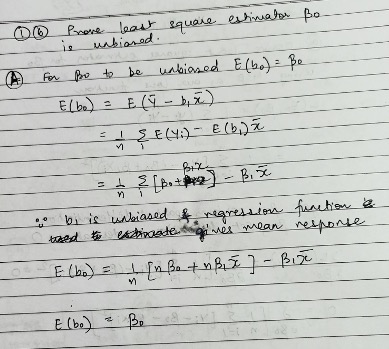 ① ⓑ Prove least square estimator β₀
is unbiased.
Ⓐ For β₀ to be unbiased E(b₀) = β₀
E(b₀) = E(ȳ - b₁x̄)
= 1/n Σᵢ E(yᵢ) - E(b₁)x̄
= 1/n Σᵢ [β₀ + β₁xᵢ] - β₁x̄
∵ b₁ is unbiased & regression function
gives mean response
E(b₀) = 1/n [nβ₀ + nβ₁x̄] - β₁x̄
E(b₀) = β₀